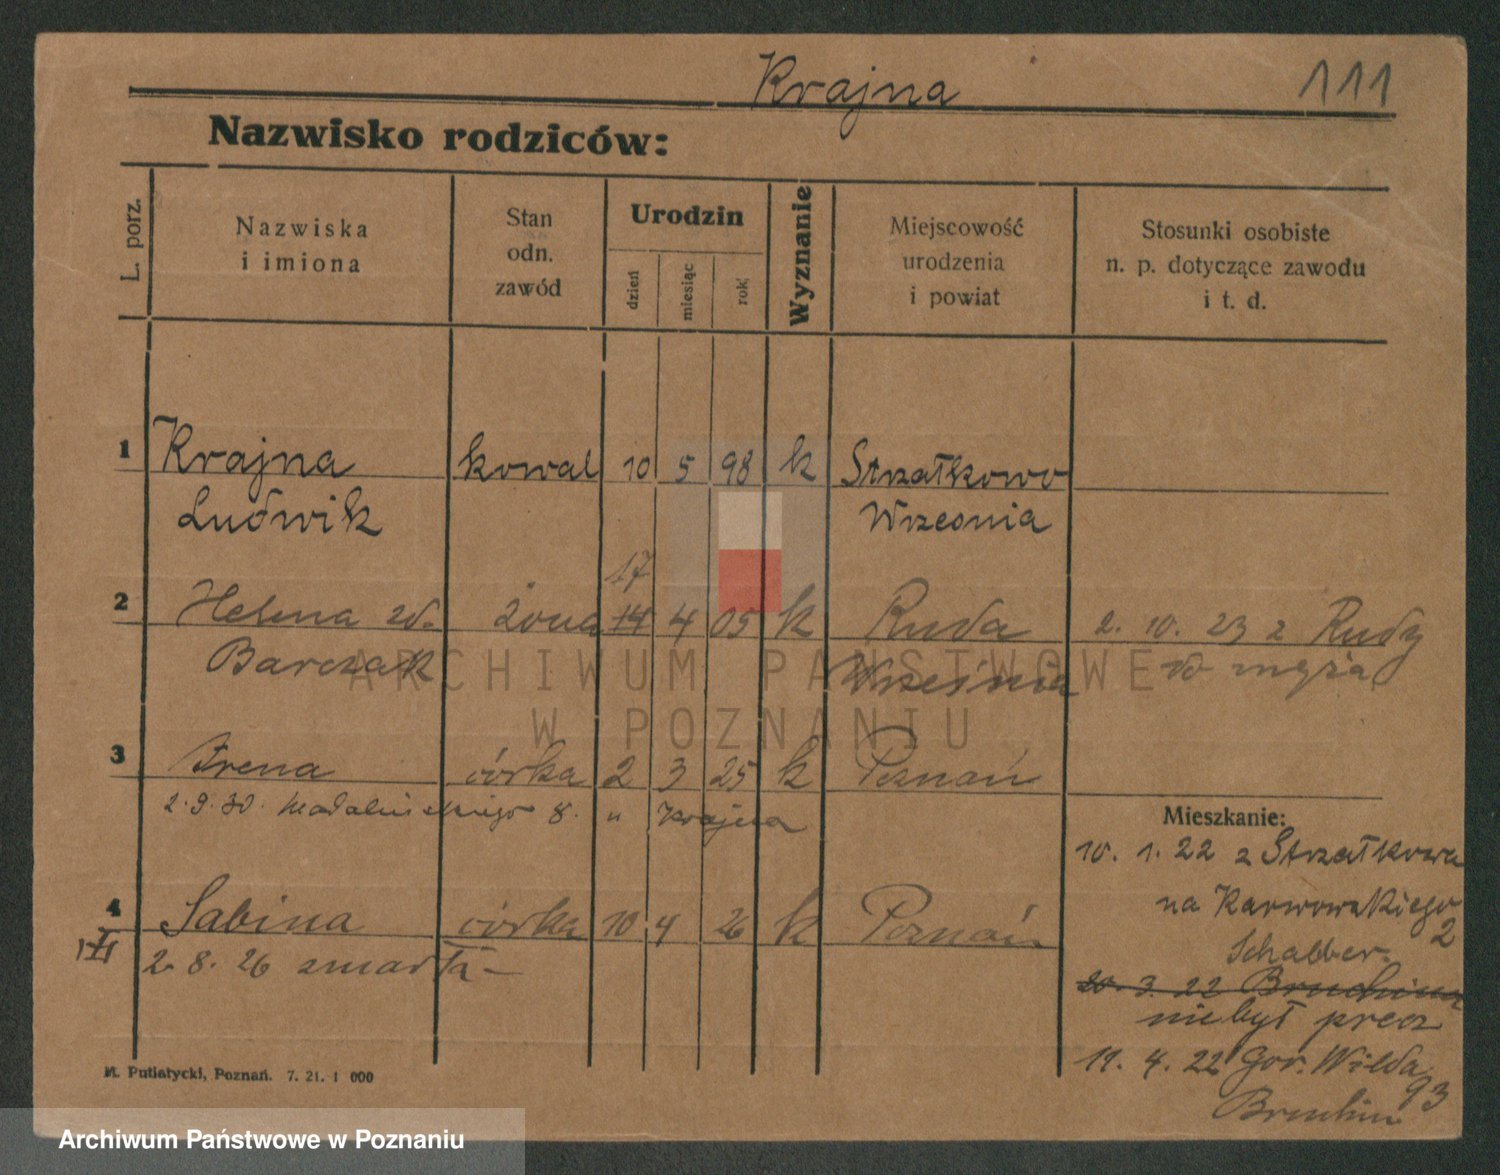 Krajna 111
Nazwisko rodziców:
L. porz.
Nazwiska
i imiona
Stan
odn.
zawód
Urodzin
dzień
miesiąc
rok
Wyznanie
Miejscowość
urodzenia
i powiat
Stosunki osobiste
n. p. dotyczące zawodu
i t. d.
1 Krajna kowal 10 5 98 k Strzałkowo
Ludwik Wrzesnia
17
2 Helena zd. żona 14 4 05 k Ruda 2. 10. 23 z Rudy
Barczak Września do męża
3 Irena córka 2 3 25 k Poznań
2. 9. 30. Madalińskiego 8. u Krajna
4 Sabina córka 10 4 26 k Poznań
2. 8. 26 zmarła
Mieszkanie:
10. 1. 22 z Strzałkowa
na Karwowskiego
2
Schabber.
20. 3. 22
niebył precz
11. 4. 22 Gór. Wilda
93
M. Putiatycki, Poznań. 7. 21. 1 000
ARCHIWUM PAŃSTWOWE
W POZNANIU
Archiwum Państwowe w Poznaniu